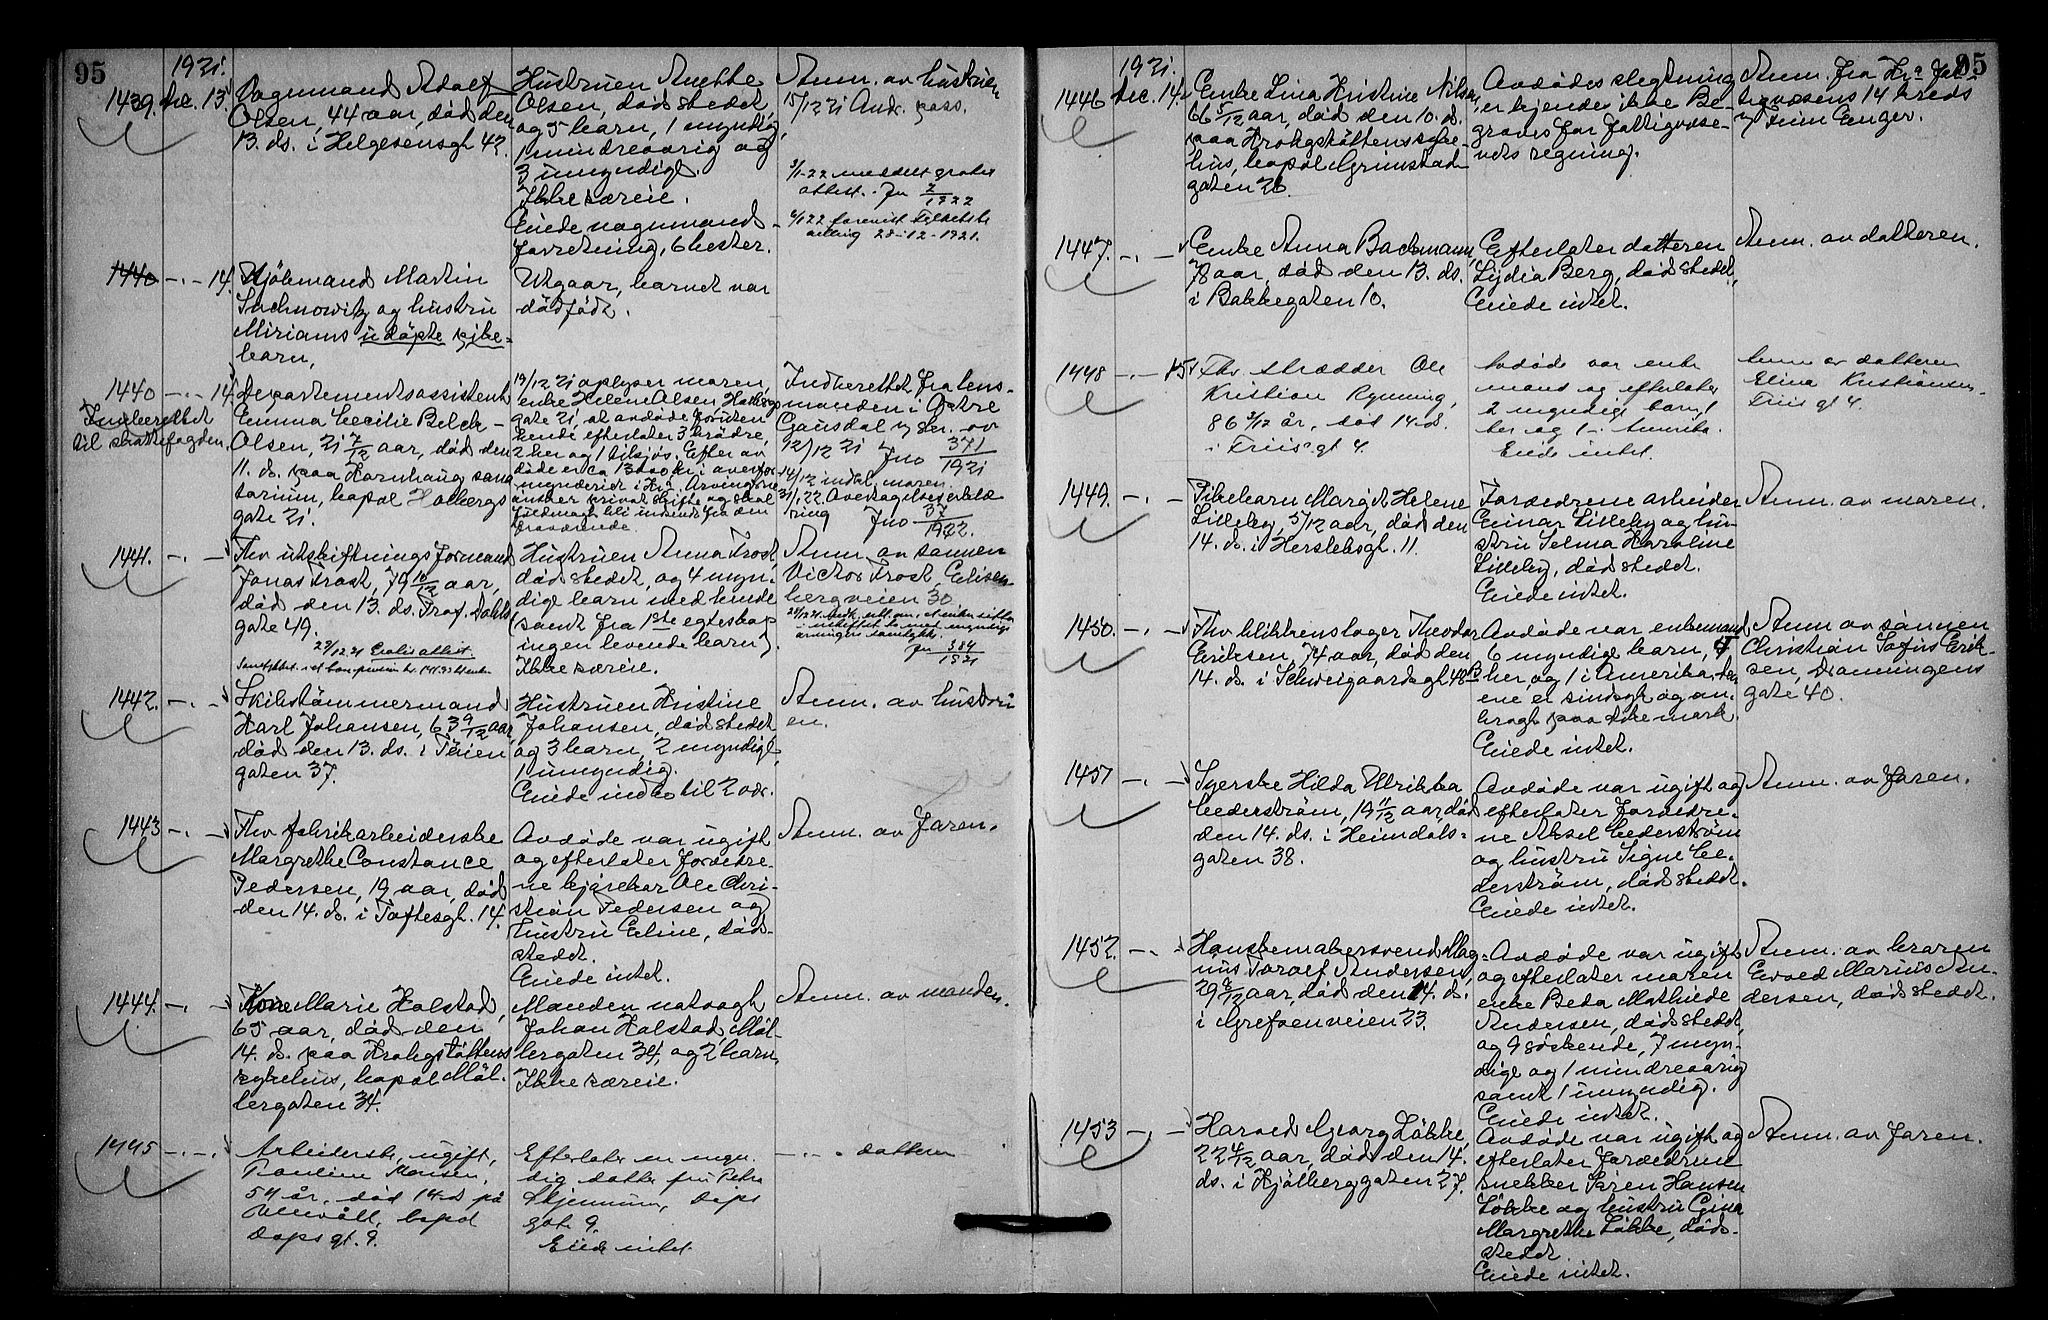 95
1921.
1439. Dec. 13.
Vognmand Adolf
Olsen, 44 aar, død den
13. ds. i Helgesensgt. 42.
Hustruen Anette
Olsen, dødsstedet
og 5 barn, 1 myndig,
1 mindreaarig og
3 umyndige.
Ikke særeie.
Eiede vognmands-
forretning, 6 hester.
Anm. av hustruen
15/12 21 And. pass.
3/1-22 meddelt gratis
attest. Jn 2/1922
1440 -.- 14.
Kjøbmand Martin
Sachnowitz og hustru
Miriams udøpte pike-
barn,
Utgaar, barnet var
dødfødt.
1440 -.- 14.
Indberettet
til skattefogden.
Departementsassistent
Emma Cecilie Belck-
Olsen, 21 7/12 aar, død den
11. ds. paa Kornhaug sana
torium, bopæl Holbergs
gate 21.
19/12 21 oplyser moren,
enke Helene Olsen, Holbergs
gate 21, at avdøde foruten
hende efterlater 3 brødre,
2 her og 1 tilsjøs. Efter av
døde er ca 13000 kr. i overfor-
mynderiet i Kr.a. Arvingene
ønsker privat skifte og skal
fuldmagt bli indsendt fra den
fraværende.
Indberettet fra lens-
manden i Østre
Gausdal
12/12 21 Jno 371/1921
14/12 indk. moren.
31/1 22. Overtagelseserklæ
ring Jno 37/1922.
1441. -.-
Fhv. utskiftningsformand
Jonas Frost, 79 10/12 aar,
død den 13. ds. Prof. Dahls
gate 49.
28/12 21 Gratis attest
Hustruen Anna Frost,
dødsstedet, og 4 myn-
dige barn med hende
(samt fra 1ste egteskap
ingen levende barn).
Ikke særeie.
Anm. av sønnen
Victor Frost, Elisen-
bergveien 30.
Jn 384/1921
1442. -.-
Skibstømmermand
Karl Johansen, 63 9/12 aar,
død den 13. ds. i Tøien
gaten 37.
Hustruen Kristine
Johansen, dødsstedet
og 3 barn, 2 myndige,
1 umyndig.
Eiede indbo til 2 vær.
Anm. av hustru
en.
1443 -.-
Fhv. fabrikarbeiderske
Margrethe Constance
Pedersen, 19 aar, død
den 14. ds. i Toftesgt. 14.
Avdøde var ugift
og efterlater forældre-
ne kjørekar Ole Chri-
stian Pedersen og
hustru Eline, døds-
stedet.
Eiede intet.
Anm. av faren.
1444. -.-
Kone Marie Halstad,
65 aar, død den
14. ds. paa Krohgstøttens
sykehus, bopæl Møl-
lergaten 34.
Manden natvagt
Johan Halstad, Møl-
lergaten 34, og 2 barn,
Ikke særeie.
Anm. av manden.
1445 -.-
Arbeiderske, ugift,
Pauline Hansen,
54 år, død 14. ds på
Ullevål, bopæl
Dops gt. 9.
Efterlater en myn-
dig datter fru Petra
Skjennum, Dops
gat. 9.
Eiede intet.
-.- datteren
95
1921.
1446 Dec. 14.
Enke Lina Kristine Nilsen,
66 5/12 aar, død den 10. ds.
paa Krohgstøttens syke-
hus, bopæl Grimstad-
gaten 26.
Avdødes slegtninge
er kjendte ikke. Be-
graves for fattigvæse-
nets regning.
Anm. fra Kr.a fat-
tigvæsens 14 kreds
v Feiim Enger.
1447. -.-
Enke Anna Backmann,
78 aar, død den 13. ds.
i Bakkegaten 10.
Efterlater datteren
Lydia Berg, dødsstedet,
Eiede intet.
Anm. av datteren.
1448 -.- 15
Fhv. skrædder Ole
Kristian Rynning,
86 3/12 år, død 14. ds.
i Friis' gt 4.
Avdøde var enke
mand og efterlater
2 myndige barn, 1
her og 1 i Amerika.
Eiede intet.
Anm. av datteren
Elina Kristiansen,
Friis gt 4.
1449. -.-
Pikebarn Margit Helene
Lilleby, 5/12 aar, død den
14. ds. i Herslebsgt. 11.
Forældrene arbeider
Einar Lilleby og hu-
stru Selma Karoline
Lilleby, dødsstedet.
Eiede intet.
Anm. av moren.
1450. -.-
Fhv. blikkenslager Theodor
Eriksen, 74 aar, død den
14. ds. i Schweigaardsgt. 48B
Avdøde var enkemand,
6 myndige barn, 5
her og 1 i Amerika. Den
ene er sindssyk og an-
bragt paa Dikemark.
Eiede intet.
Anm. av sønnen
Christian Sofus Erik-
sen, Dronningens
gate 40.
1451 -.-
Syerske Hilda Ulrikka
Cederstrøm, 19 11/12 aar, død
den 14. ds. i Heimdals-
gaten 38.
Avdøde var ugift og
efterlater forældre-
ne Aksel Cederstrøm
og hustru Signe Ce-
derstrøm, dødsstedet.
Eiede intet.
Anm. av faren.
1452. -.-
Hanskemakersvend Mag-
nus Toralf Andersen,
29 8/12 aar, død den 14. ds.
i Grefsenveien 23.
Avdøde var ugift
og efterlater moren
enke Beda Mathilde
Andersen, dødsstedet,
og 9 søskende, 7 myn-
dige og 1 mindreaarig
samt 1 umyndig.
Eiede intet.
Anm. av broren
Evald Marius An-
dersen, dødsstedet.
1453 -.-
Harald Georg Løkke,
22 4/12 aar, død den 14.
ds. i Kjølberggaten 27.
Avdøde var ugift og
efterlater forældrene
snekker Søren Hansen
Løkke og hustru Gina
Margrethe Løkke, døds-
stedet.
Eiede intet.
Anm. av faren.